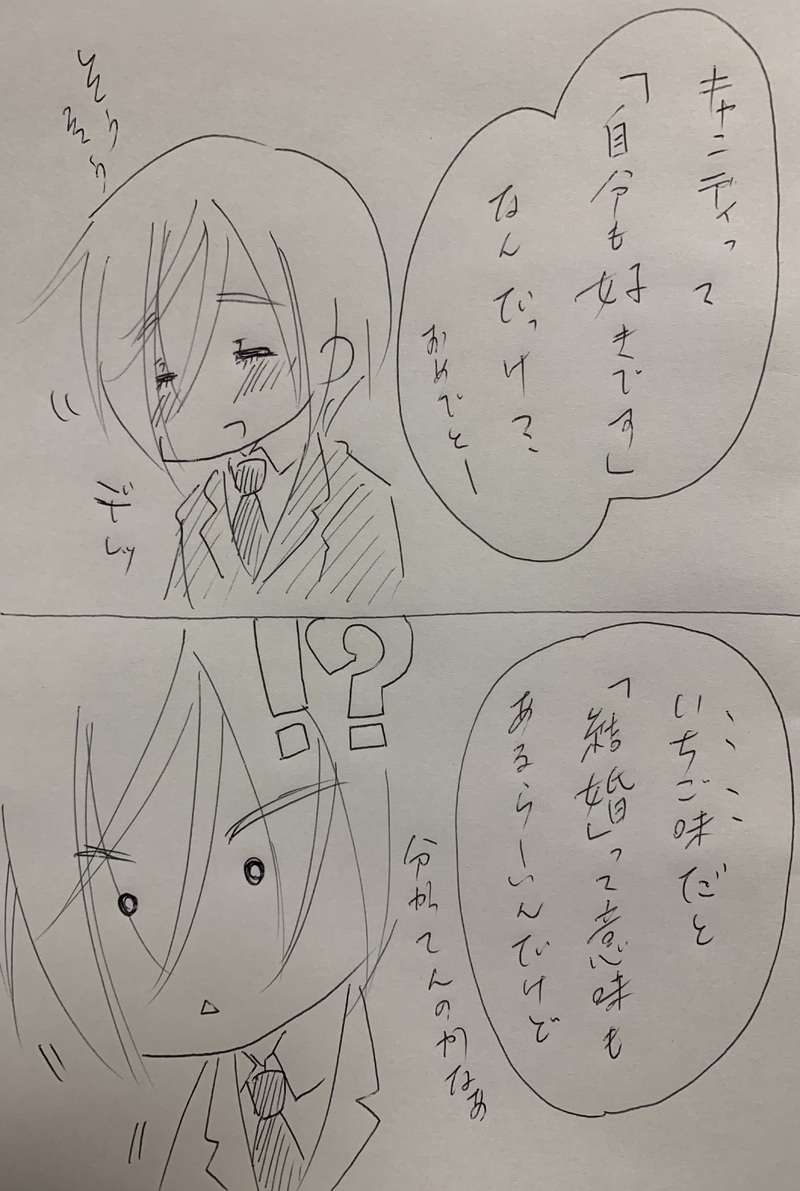 キャンディって
「自分も好きです」
なんだっけ?
おめでとー
そろり
そろり
ギレッ
!?
いちご味だと
「結婚」って意味も
あるらーいんだけど
分かってんのかなぁ